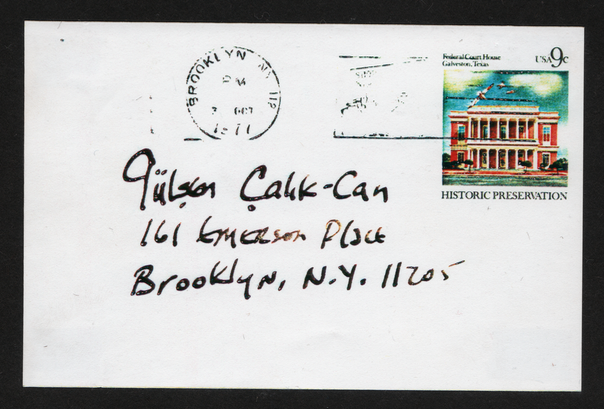 Federal Court House
Galveston, Texas
USA 9c
BROOKLYN NY 112
PM
3 OCT
1977
HISTORIC PRESERVATION
Gülşen Çalık-Can
161 EMERSON PLACE
Brooklyn, N.Y. 11205